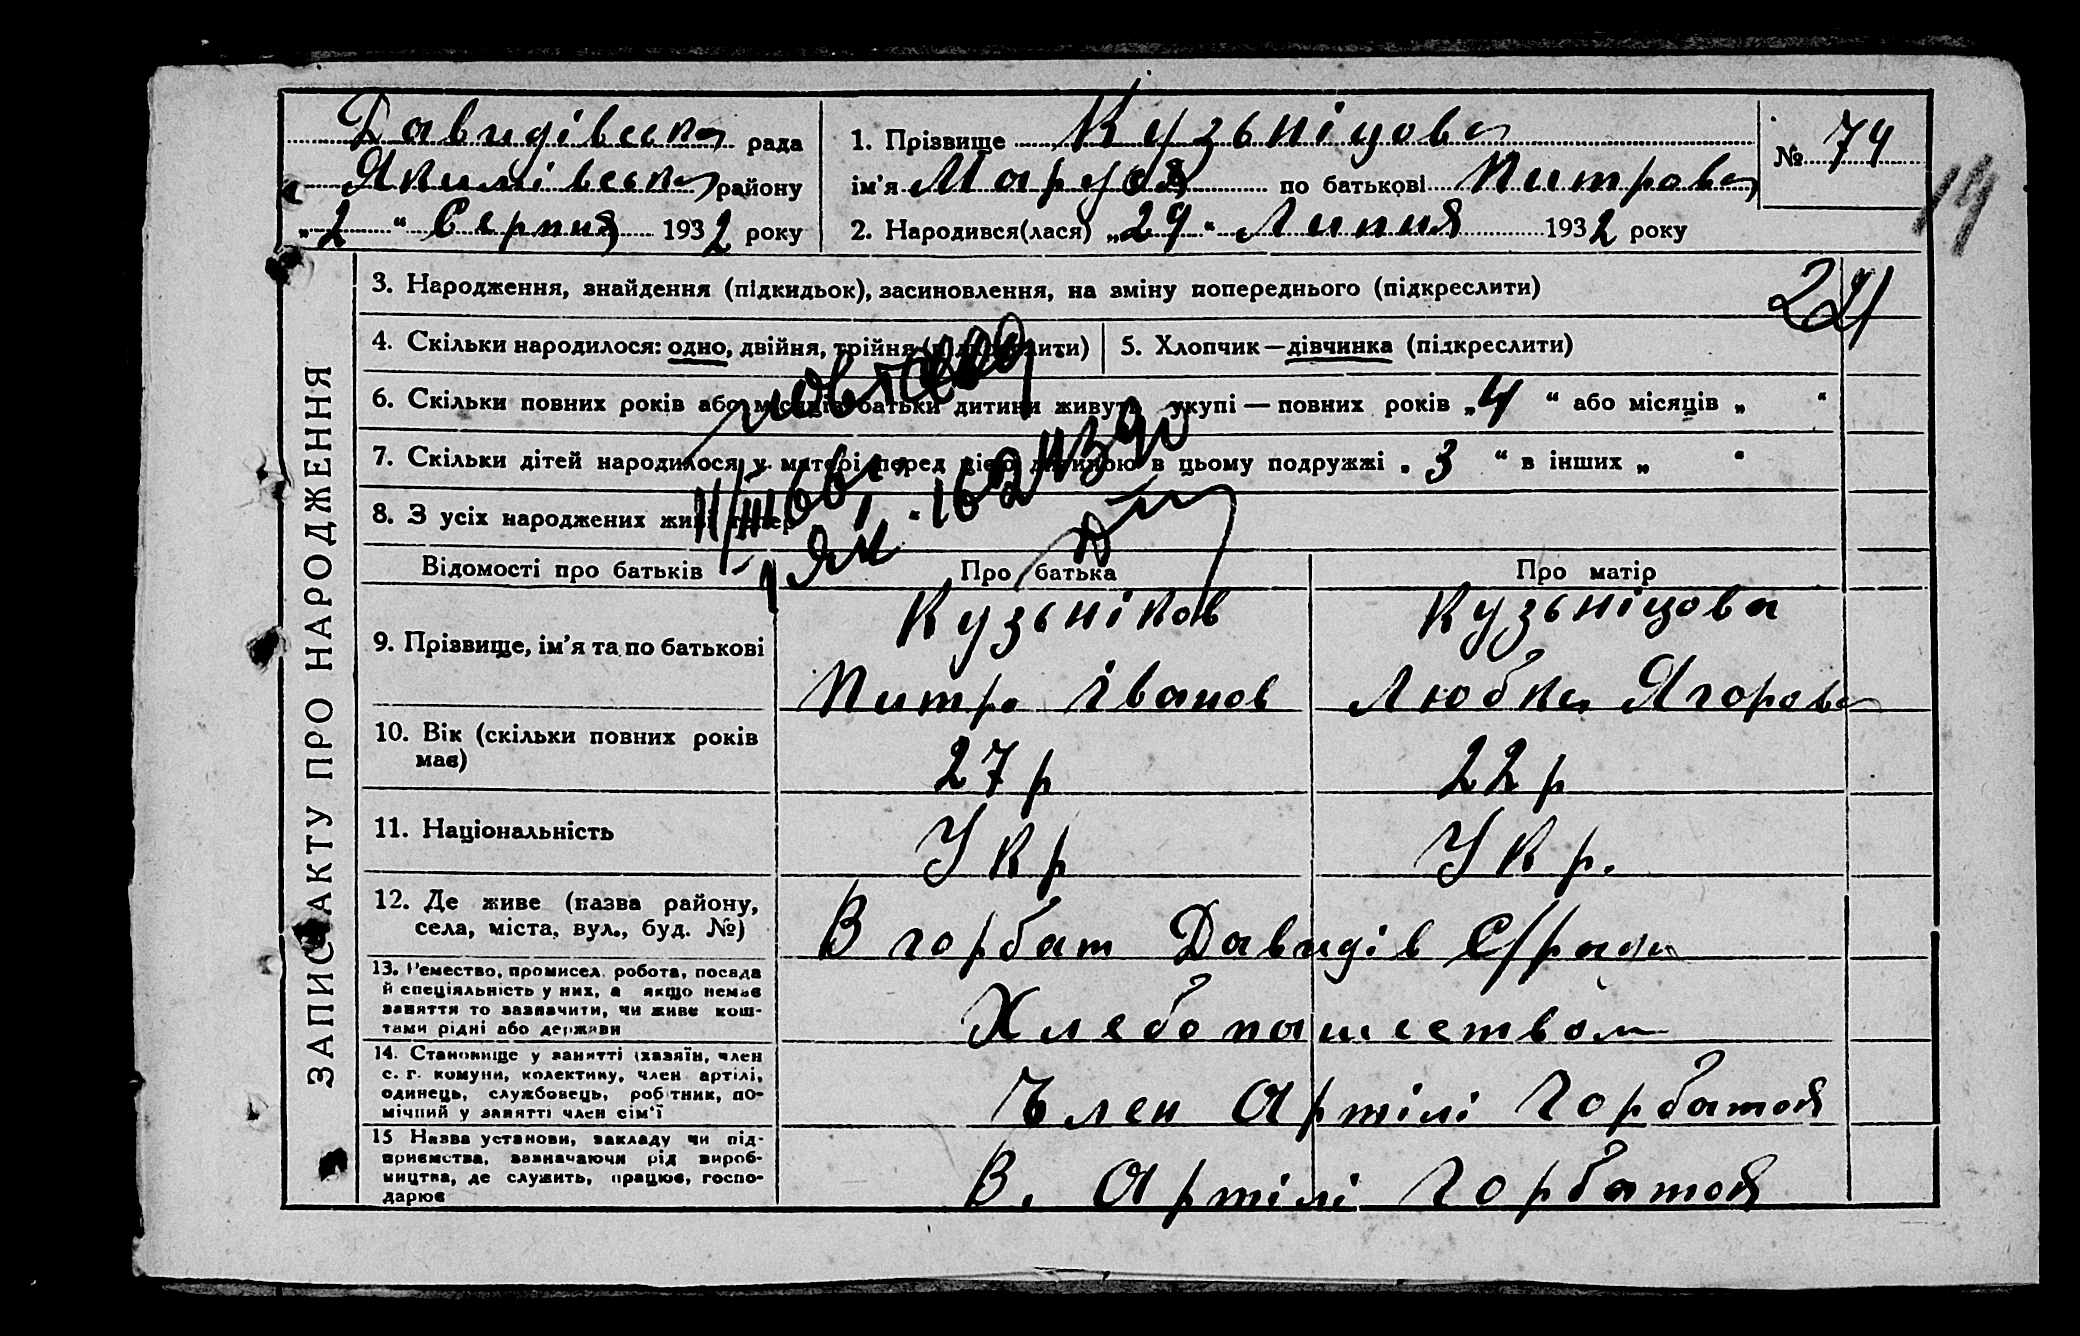 Давидівська рада
Якимівська району
„2“ Серпня 1932 року
1. Прізвище Кузьніцова
ім'я Маруся по батькові Питрова
2. Народився(лася) „29“ Липня 1932 року
№ 74
19
221
ЗАПИС АКТУ ПРО НАРОДЖЕННЯ
3. Народження, знайдення (підкидьок), засиновлення, на зміну попереднього (підкреслити)
4. Скільки народилося: одно, двійня, трійня (підкреслити)
5. Хлопчик—дівчинка (підкреслити)
6. Скільки повних років або місяців батьки дитини живуть укупі — повних років „4“ або місяців „ “
7. Скільки дітей народилося у матері перед цією дитиною в цьому подружжі „3“ в інших „ “
8. З усіх народжених живі тепер
Відомості про батьків
Про батька
Про матір
9. Прізвище, ім'я та по батькові
Кузьніков
Питро Іванов
Кузьніцова
Любка Ягорова
10. Вік (скільки повних років
має)
27 р
22 р
11. Національність
Укр
Укр.
12. Де живе (назва району,
села, міста, вул., буд. №)
В горбат Давидів С/ради
13. Ремество, промисел, робота, посада
й спеціяльність у них, а якщо немає
заняття то зазначити, чи живе кош-
тами рідні або держави
Хлебопашеством
14. Становище у занятті (хазяїн, член
с. г. комуни, колективу, член артілі,
одинець, службовець, робітник, по-
мічний у занятті член сім'ї
Член Артілі Горбатоя
15 Назва установи, закладу чи під-
приємства, зазначаючи рід вироб-
ництва, де служить, працює, госпо-
дарює
В. Артілі Горбатоя